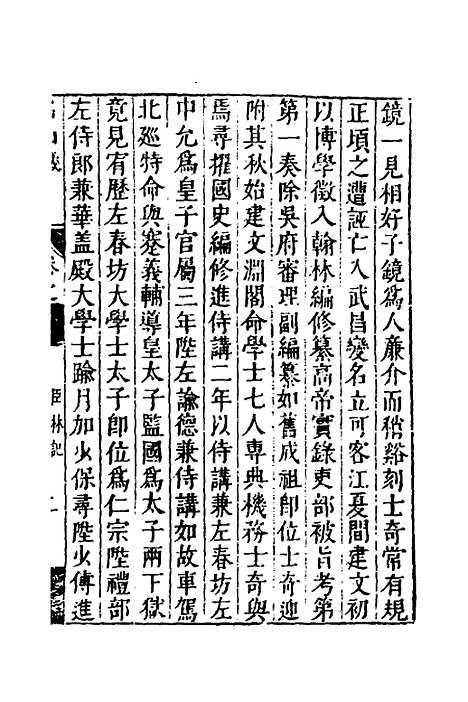 鏡一見相好子鏡爲人亷介而稍谿刻士奇常有規
正頃之遭誣亡入武昌變名立可客江夏間建文初
以博學徵入翰林編修纂高帝實錄吏部被旨考第
第一奏除吳府審理副編纂如舊成祖即位士奇迎
附其秋始建文淵閣命學士七人專典機務士奇與
焉尋擢國史編修進侍講二年以侍講兼左春坊左
中允爲皇子官屬三年陞左諭德兼侍講如故車駕
北廵特命與蹇義輔導皇太子監國爲太子兩下獄
竟見宥歷左春坊大學士太子即位爲仁宗陞禮部
左侍郎兼華盖殿大學士踰月加少保尋陞少傅進
名山藏
臣林記